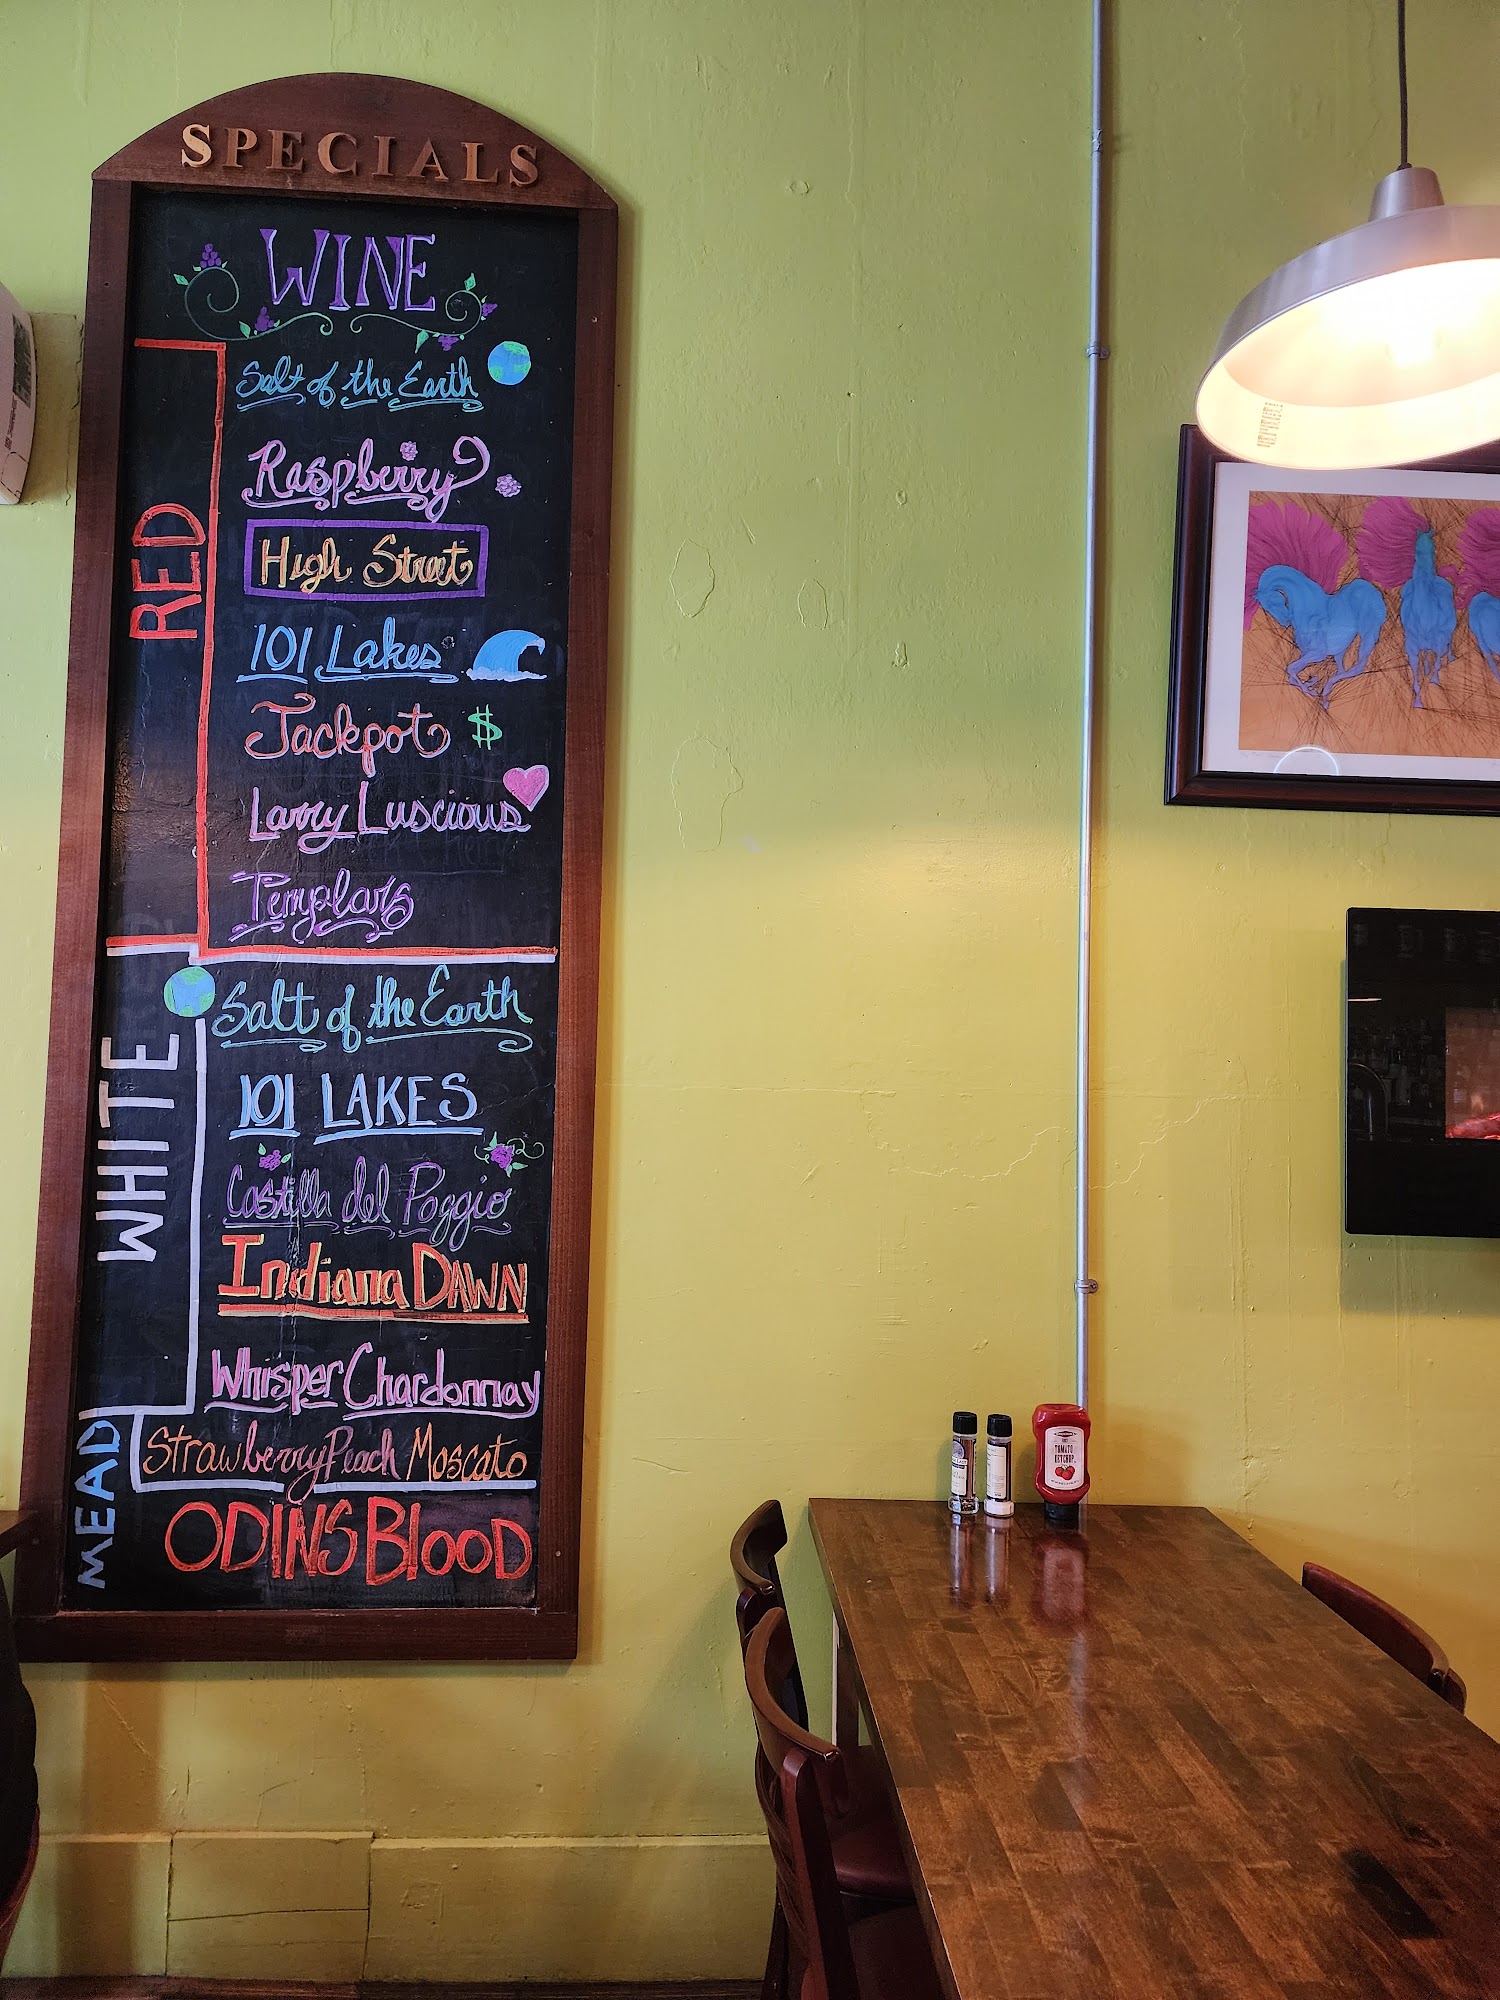 SPECIALS
WINE
RED
Salt of the Earth
Raspberry
High Street
101 Lakes
Jackpot $
Larry Luscious
Templars
WHITE
Salt of the Earth
101 LAKES
Castilla del Poggio
Indiana DAWN
Whisper Chardonnay
Strawberry Peach Moscato
MEAD
ODINS BlOOD
TOMATO
KETCHUP